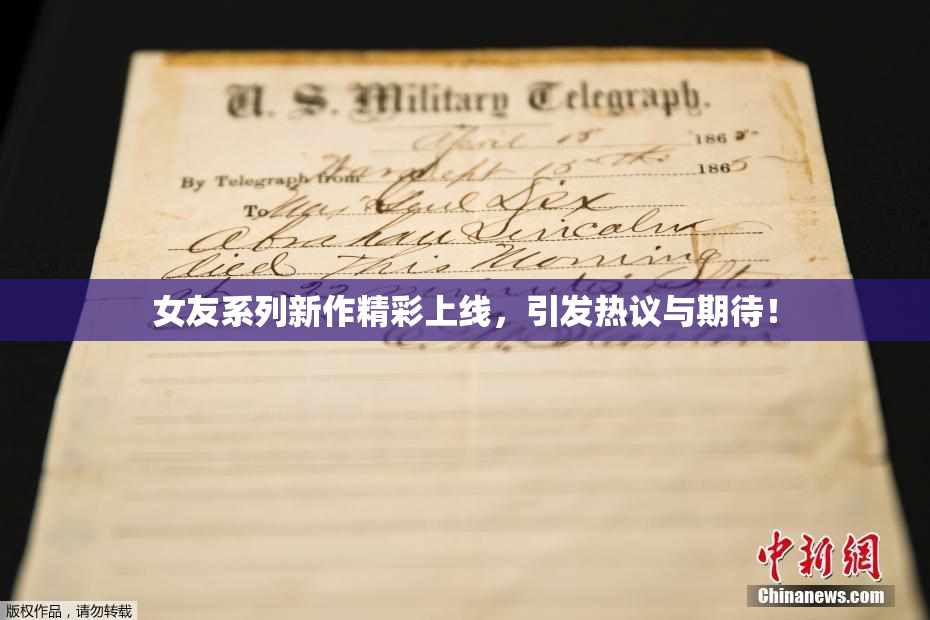 U. S. Military Telegraph.
April 15 1865
By Telegraph from War Dept 15th 1865
To Maj Genl Dix
Abraham Lincoln
died This Morning
at 22 minutes after
女友系列新作精彩上线，引发热议与期待！
中新網
Chinanews.com
版权作品，请勿转载